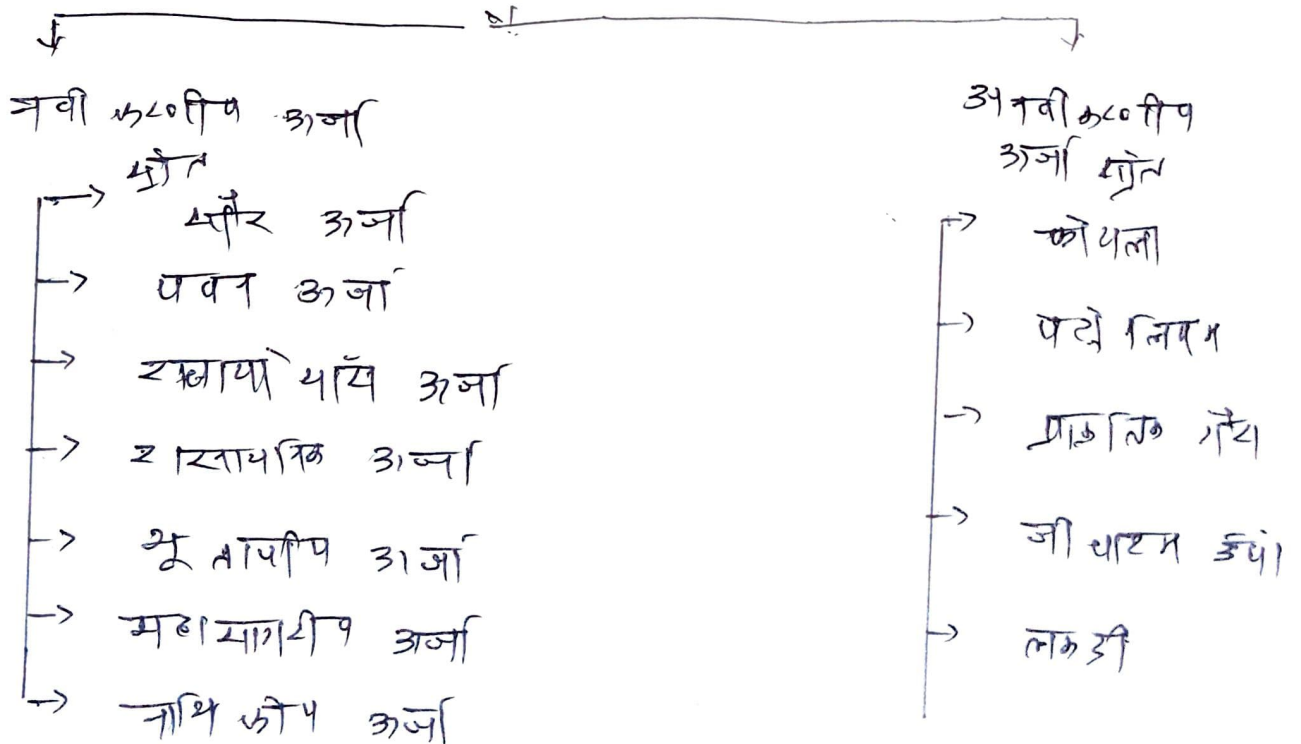 नवीकरणीय ऊर्जा
स्रोत
सौर ऊर्जा
पवन ऊर्जा
बायोमास ऊर्जा
रासायनिक ऊर्जा
भू तापीय ऊर्जा
महासागरीय ऊर्जा
नाभिकीय ऊर्जा
अनवीकरणीय
ऊर्जा स्रोत
कोयला
पेट्रोलियम
प्राकृतिक गैस
जीवाश्म ईंधन
लकड़ी